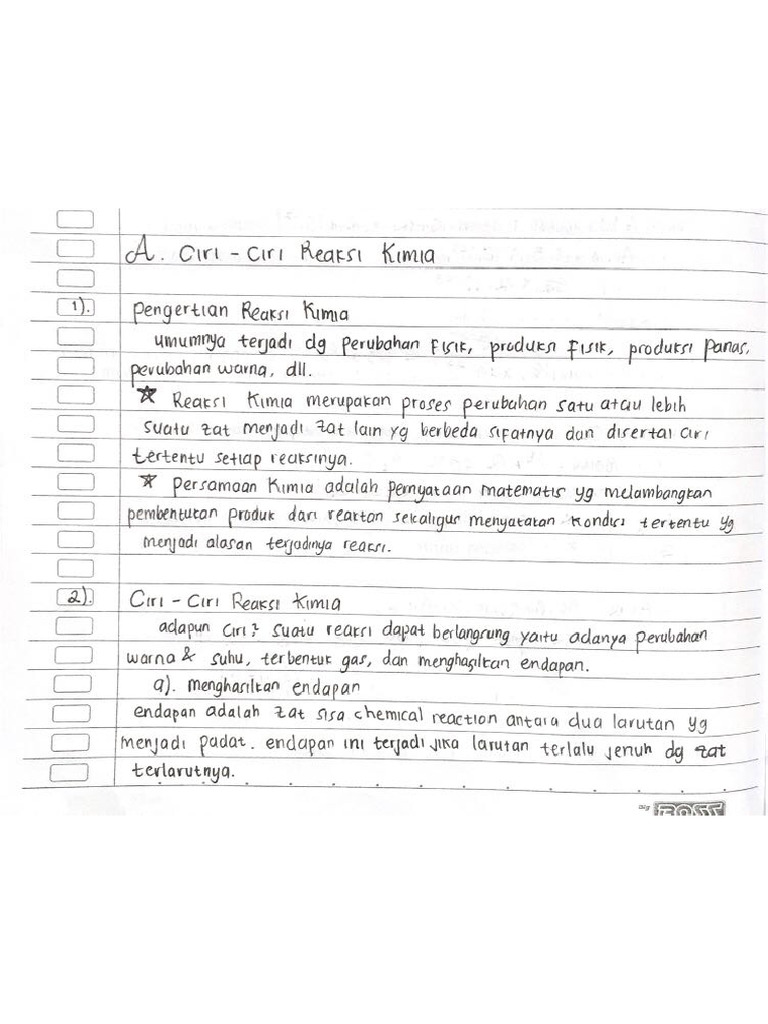 A. Ciri - Ciri Reaksi Kimia
1). pengertian Reaksi Kimia
umumnya terjadi dg perubahan fisik, produksi fisik, produksi panas,
perubahan warna, dll.
☆ Reaksi Kimia merupakan proses perubahan satu atau lebih
suatu zat menjadi zat lain yg berbeda sifatnya dan disertai ciri
tertentu setiap reaksinya.
☆ Persamaan Kimia adalah pernyataan matematis yg melambangkan
pembentukan produk dari reaktan sekaligus menyatakan kondisi tertentu yg
menjadi alasan terjadinya reaksi.
2). Ciri - Ciri Reaksi Kimia
adapun ciri² suatu reaksi dapat berlangsung yaitu adanya perubahan
warna & suhu, terbentuk gas, dan menghasilkan endapan.
a). menghasilkan endapan
endapan adalah zat sisa chemical reaction antara dua larutan yg
menjadi padat. endapan ini terjadi jika larutan terlalu jenuh dg zat
terlarutnya.
Big BOSS